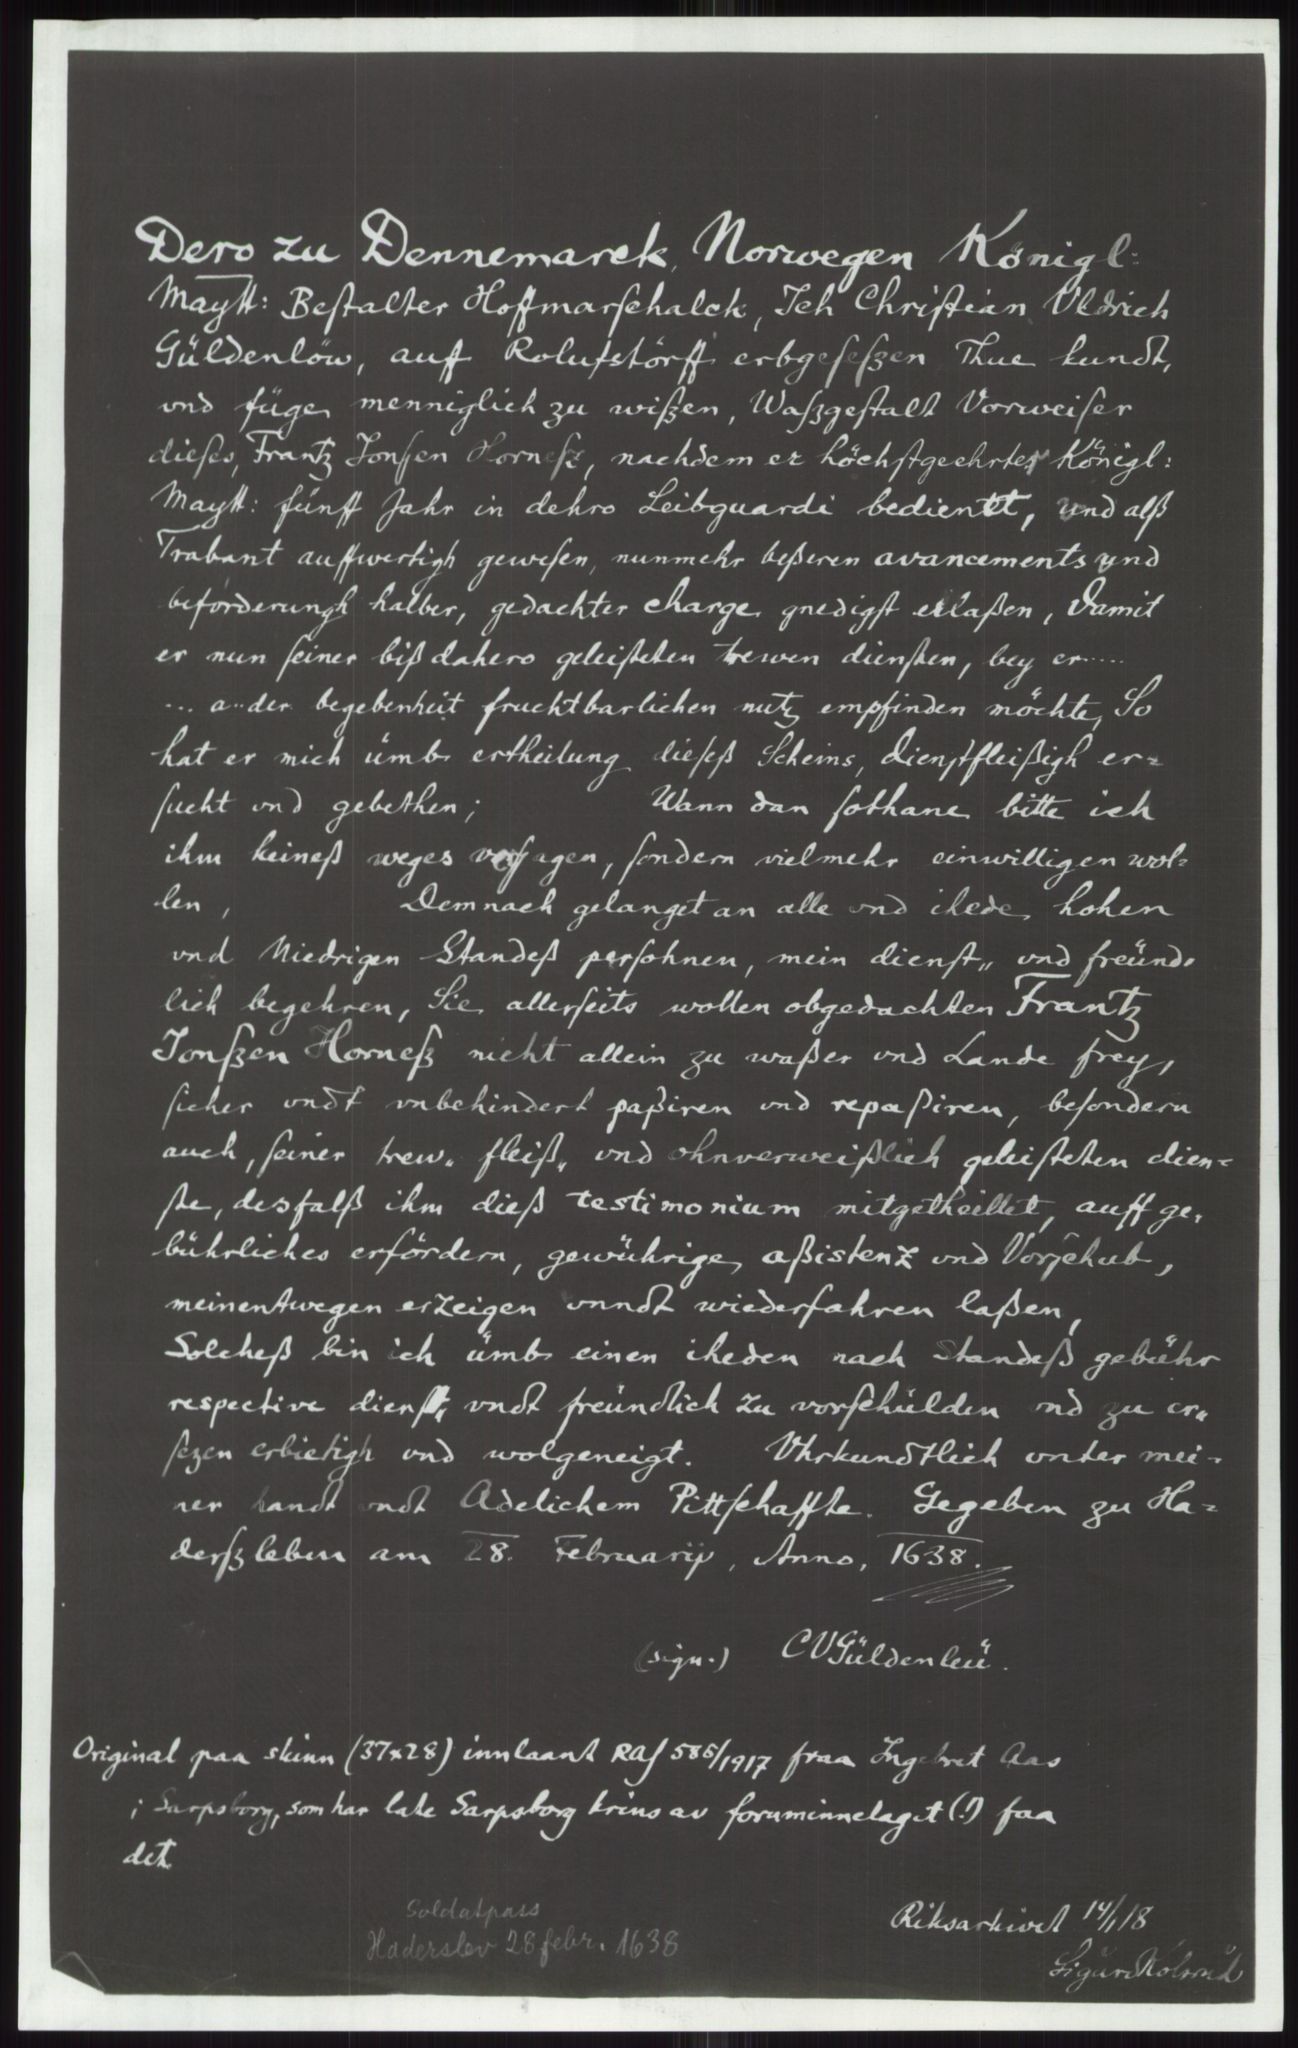 Dero zu Dennemarck, Norwegen Königl:
Maytt: Bestalter Hoffmarschalck, Ich Christian Vldrich
Güldenlöw, auff Rolufstörff erbgeseßzen Thue kundt,
vnd füge menniglich zu wißen, Waßgestalt Vorweiser
dieses, Frantz Jonßen Horneß, nachdem er höchstgeehrter Königl:
Maytt: fünff Jahr in dehro Leibguardi bedientt, vnd alß
Trabant auffwertigh gewesen, nunmehr beßeren avancements vnd
beforderungh halber, gedachter charge gnedigst erlaßen, damit
er nun seiner biß dahero geleisteten trewen diensten, bey er.....
... a..der begebenheit fruchtbarlichen nutz empfinden möchte, So
hat er mich ümb ertheilung dieseß Scheins, dienstfleißigh er=
sucht vnd gebethen; Wann dan sothane bitte ich
ihm keineß weges versagen, sondern vielmehr einwilligen wol=
len, Demnach gelanget an alle vnd ihede hohen
vnd Niedrigen Standeß persohnen, mein dienst„ vnd freünd=
lich begehren, Sie allerseits wollen obgedachten Frantz
Jonßzen Horneß nicht allein zu waßer vnd Lande frey,
sicher vndt vnbehindert paßiren vnd repaßiren, besondern
auch, seiner trew„ fleiß„ vnd ohnverweißlich geleisteten dien=
ste, desfalß ihm dieß testimonium mitgetheillet, auff ge=
bührliches erfördern, gewührige aßistenz vnd Vorschub,
meinentwegen erzeigen vnndt wiederfahren laßen,
Solcheß bin ich ümb einen iheden nach Standeß gebühr
respective dienst„ vndt freündtlich zu vorschülden vnd zu er„
sezen erbietigh vnd wolgeneigt. Vhrkundtlich vnter mei=
ner handt vndt Adelichem Pittschaffte. Gegeben zu Ha=
derßleben am 28. Februarij, Anno, 1638.
(sign.) CVGüldenleü.
Original paa skinn (37x28) innlaant RAJ 585/1917 fraa Ingebret Aas
i Sarpsborg, som har late Sarpsborg krins av fornminnelaget (!) faa
det
Riksarkivet 14/1 18
Sigurd Kolsrud
Soldatpass
Haderslev 28 febr. 1638